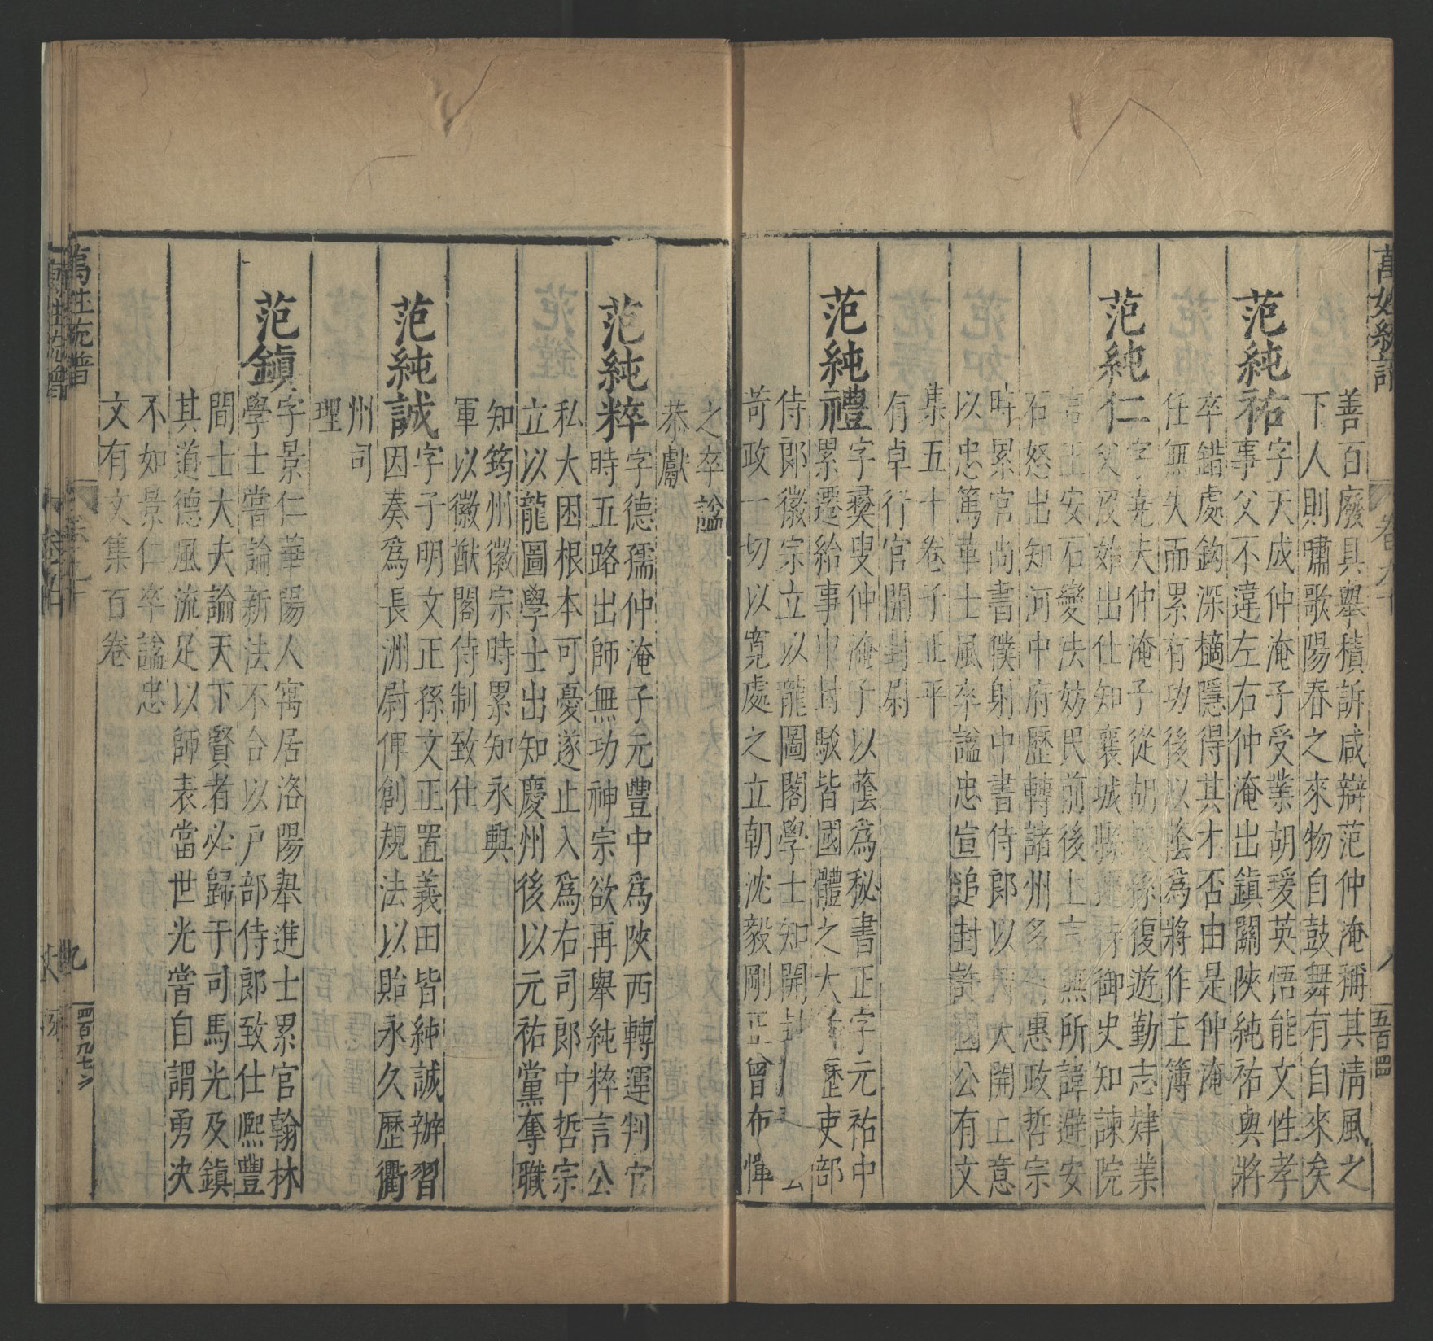 萬姓統譜
卷九十
五百四
善百廢具舉積訴咸辯范仲淹稱其清風之
下人則嘯歌陽春之來物自鼓舞有自來矣
范純祐字天成仲淹子受業胡瑗英悟能文性孝
事父不違左右仲淹出鎮關陝純祐與將
卒錯處鈎深擿隱得其才否由是仲淹
任無失而累有功後以蔭為將作主簿
范純仁字堯夫仲淹子從胡瑗孫復遊勤志肄業
父歿始出仕知襄城縣遷侍御史知諫院
言王安石變法妨民前後上言無所諱避安
石怒出知河中府歷轉諸州名奉惠政哲宗
時累官尚書僕射中書侍郎以大開上意
以忠篤革士風卒謚忠宣追封許國公有文
集五十卷子正平
有卓行官開封尉
范純禮字彝叟仲淹子以蔭為秘書正字元祐中
累遷給事中封駁皆國體之大者歷吏部
侍郎徽宗立以龍圖閣學士知開封
苛政一切以寬處之立朝沈毅剛正曾布憚
之卒謚
恭獻
范純粹字德孺仲淹子元豐中為陝西轉運判官
時五路出師無功神宗欲再舉純粹言公
私大困根本可憂遂止入為右司郎中哲宗
立以龍圖學士出知慶州後以元祐黨奪職
知筠州徽宗時累知永興
軍以徽猷閣待制致仕
范純誠字子明文正孫文正置義田皆純誠辦習
因奏為長洲尉俾創規法以貽永久歷衢
州司
理
范鎮字景仁華陽人寓居洛陽舉進士累官翰林
學士嘗論新法不合以戶部侍郎致仕熙豐
間士大夫論天下賢者必歸于司馬光及鎮
其道德風流足以師表當世光嘗自謂勇決
不如景仁卒謚忠
文有文集百卷
萬姓統譜
卷九十
九
四百九七